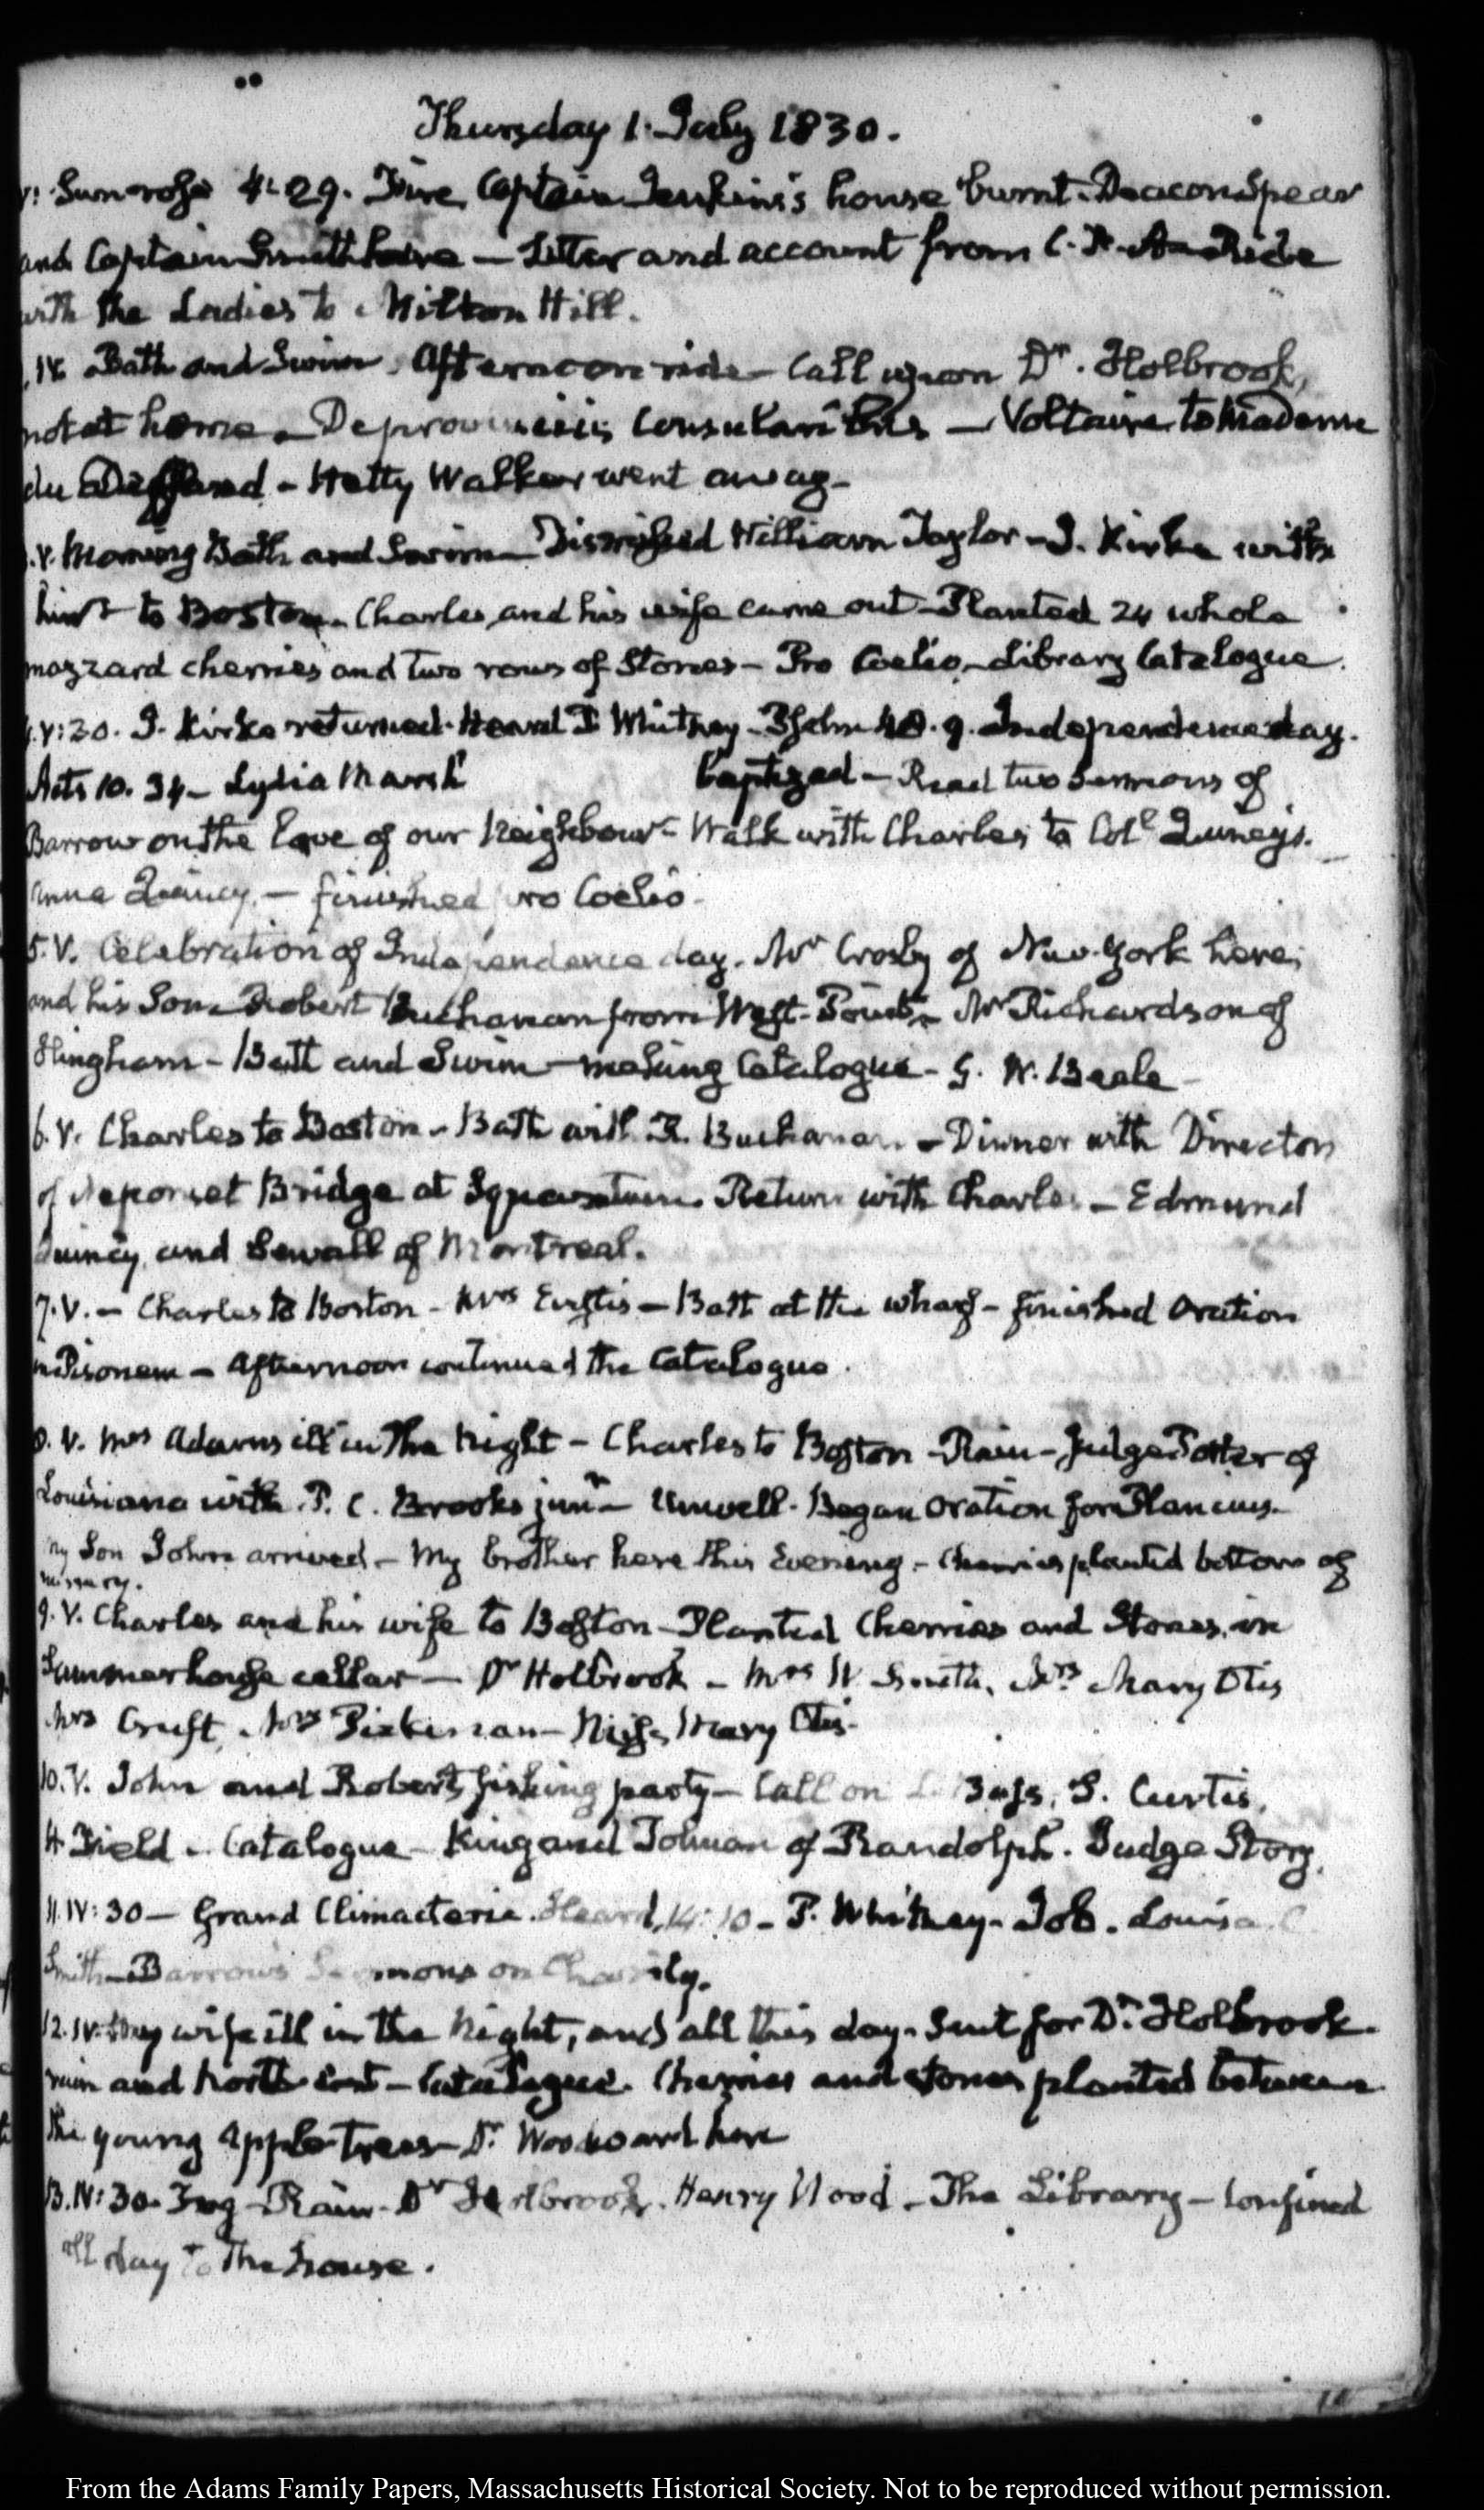 Thursday 1. July 1830.
V: Sun rose 4:29. Fire Captain Jenkins's house burnt. Deacon Spear
and Captain Smith here — Letter and account from C. F. A. — Ride
with the Ladies to Milton Hill.
IV. Bath and Swim. Afternoon ride — Call upon Dr. Holbrook,
not at home — De provinciis Consularibus — Voltaire to Madame
du Deffand — Hetty Walker went away —
V. Morning Bath and Swim — Dismissed William Taylor — J. Kirke with
him to Boston. Charles and his wife came out — Planted 24 whole
mazzard cherries and two rows of Stones — Pro Coelio — Library Catalogue.
V:20. J. Kirke returned. Heard P. Whitney — Psalm 48. 9. Independence day.
Acts 10. 34 — Lydia Marsh baptized — Read two Sermons of
Barrow on the love of our Neighbour — Walk with Charles to Col. Quincy's.
Anna Quincy — finished pro Coelio —
5. V. Celebration of Independence day. Mr Crosby of New-York here;
and his Son — Robert Buchanan from West-Point — Mr Richardson of
Hingham — Bath and Swim — making Catalogue — G. W. Beale —
6. V. Charles to Boston — Bath with R. Buchanan — Dinner with Directors
of Neponset Bridge at Squantum. Return with Charles — Edmund
Quincy and Sewall of Montreal.
7. V. — Charles to Boston — Mrs Curtis — Bath at the wharf — finished Oration
in Pisonem — Afternoon continued the Catalogue.
8. V. Mrs Adams ill in the Night — Charles to Boston — Rain — Judge Porter of
Louisiana with P. C. Brooks junr — Unwell. Began Oration for Plancius —
My Son John arrived — My brother here this Evening — Cherries planted bottom of
nursery.
9. V. Charles and his wife to Boston — Planted Cherries and Stones in
Summerhouse cellar — Dr Holbrook — Mrs W. Smith, Mrs Mary Otis
Mrs Cruft, Mrs Pickman — Miss Mary Otis —
10. V. John and Robert fishing party — Call on Bass, S. Curtis,
H Field — Catalogue — King and Tolman of Randolph. Judge Story.
11. IV:30 — Grand Climacteric. Heard 14:10 — P. Whitney — Job. Louisa C.
Smith — Barrow's Sermons on Charity.
12. IV: My wife ill in the Night, and all this day. Sent for Dr. Holbrook.
rain and North East — Catalogue. Cherries and stones planted between
the young Apple-Trees — Dr. Woodward here
13. IV:30. Fog — Rain — Dr Holbrook. Henry Wood — The Library — Confined
all day to the house.
From the Adams Family Papers, Massachusetts Historical Society. Not to be reproduced without permission.